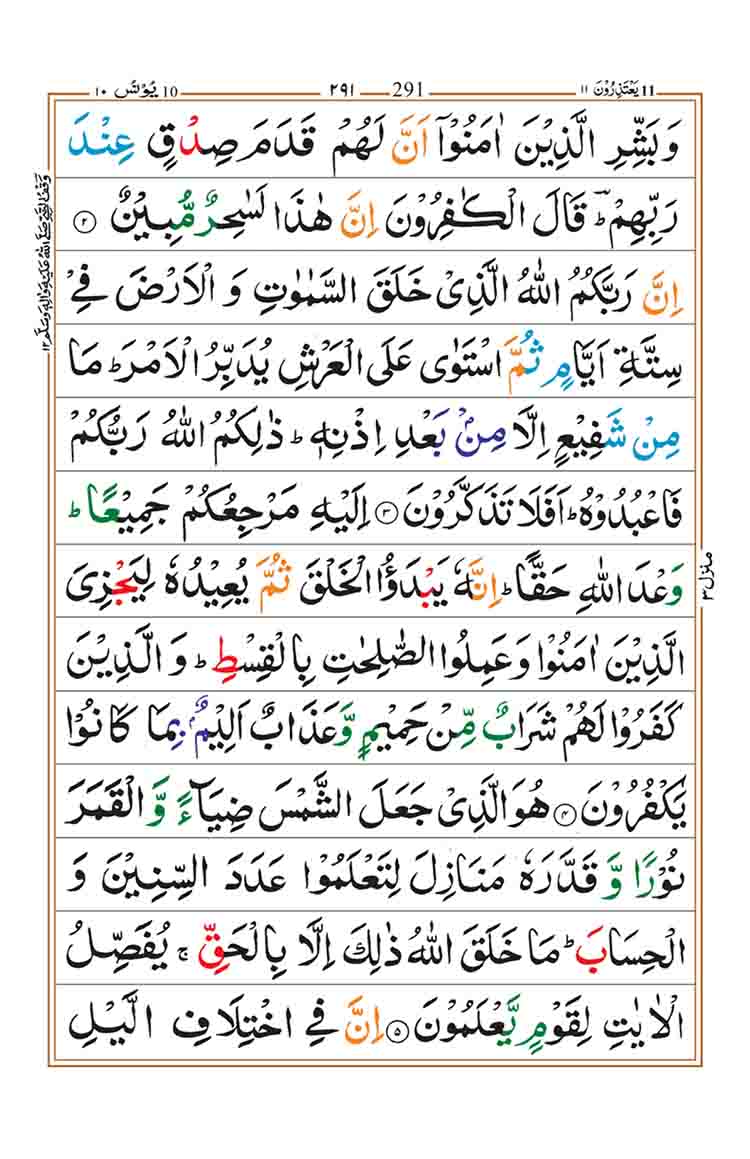 11 يَعْتَذِرُوْنَ ١١ 291 ٢٩١ 10 يُوْنُس ١٠
وَبَشِّرِ الَّذِيْنَ اٰمَنُوْۤا اَنَّ لَهُمْ قَدَمَ صِدْقٍ عِنْدَ
رَبِّهِمْ ؕ قَالَ الْكٰفِرُوْنَ اِنَّ هٰذَا لَسٰحِرٌ مُّبِيْنٌ ﴿۲﴾
اِنَّ رَبَّكُمُ اللّٰهُ الَّذِىْ خَلَقَ السَّمٰوٰتِ وَ الْاَرْضَ فِىْ
سِتَّةِ اَيَّامٍ ثُمَّ اسْتَوٰى عَلَى الْعَرْشِ يُدَبِّرُ الْاَمْرَ ؕ مَا
مِنْ شَفِيْعٍ اِلَّا مِنْۢ بَعْدِ اِذْنِهٖ ؕ ذٰلِكُمُ اللّٰهُ رَبُّكُمْ
فَاعْبُدُوْهُ ؕ اَفَلَا تَذَكَّرُوْنَ ﴿۳﴾ اِلَيْهِ مَرْجِعُكُمْ جَمِيْعًا ؕ
وَعْدَ اللّٰهِ حَقًّا ؕ اِنَّهٗ يَبْدَؤُا الْخَلْقَ ثُمَّ يُعِيْدُهٗ لِيَجْزِىَ
الَّذِيْنَ اٰمَنُوْا وَعَمِلُوا الصّٰلِحٰتِ بِالْقِسْطِ ؕ وَ الَّذِيْنَ
كَفَرُوْا لَهُمْ شَرَابٌ مِّنْ حَمِيْمٍ وَّعَذَابٌ اَلِيْمٌۢ بِمَا كَانُوْا
يَكْفُرُوْنَ ﴿۴﴾ هُوَ الَّذِىْ جَعَلَ الشَّمْسَ ضِيَآءً وَّ الْقَمَرَ
نُوْرًا وَّ قَدَّرَهٗ مَنَازِلَ لِتَعْلَمُوْا عَدَدَ السِّنِيْنَ وَ
الْحِسَابَ ؕ مَا خَلَقَ اللّٰهُ ذٰلِكَ اِلَّا بِالْحَقِّ ۚ يُفَصِّلُ
الْاٰيٰتِ لِقَوْمٍ يَّعْلَمُوْنَ ﴿۵﴾ اِنَّ فِىْ اخْتِلَافِ الَّيْلِ
منزل ۳